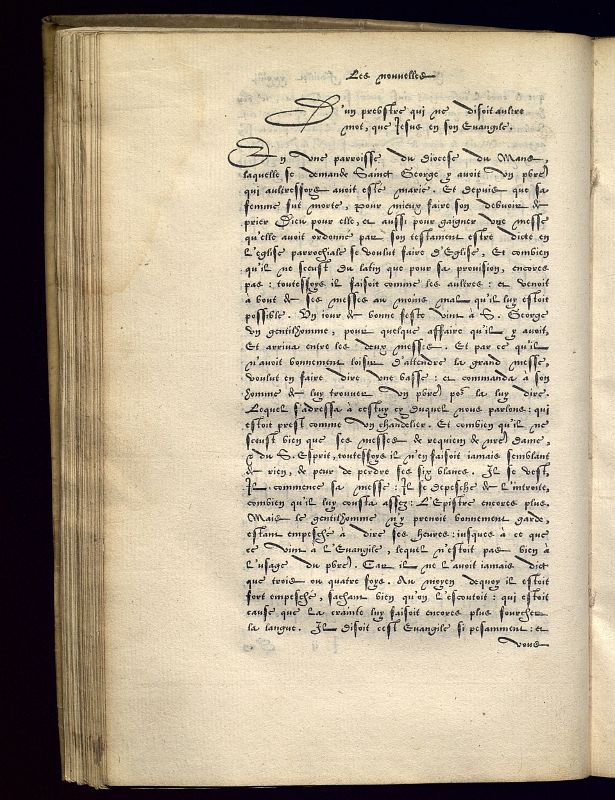 Les nouuelles
D'un prebstre qui ne disoit aultre
mot, que Jesus en son Euangile.
En vne parroisse du Diocese du Mans,
laquelle se demande Sainct George y auoit vn pbre
qui aultreffoys auoit esté marié. Et depuis que sa
femme fut morte, pour mieux faire son debuoir de
prier Dieu pour elle, et aussi pour gaigner vne messe
qu'elle auoit ordonné par son testament estre dicte en
l'eglise parrochiale se voulut faire d'Eglise, Et combien
qu'il ne sceust du latin que pour sa prouision, encores
pas: touteffoys il faisoit comme les aultres: et venoit
à bout de ses messes au moins mal qu'il luy estoit
possible. Vn iour de bonne feste vint à S. George
vn gentilhomme, pour quelque affaire qu'il y auoit,
Et arriua entre les deux messes. Et par ce qu'il
n'auoit bonnement loisir d'attendre la grand messe,
voulut en faire dire vne basse: et commanda à son
homme de luy trouuer vn pbre po<sup>r</sup> la luy dire.
Lequel s'adressa à cestuy cy duquel nous parlons: qui
estoit prest comme vn chandelier. Et combien qu'il ne
sceust bien que ses messes de requiem de nre Dame,
& du S. Esprit, touteffoys il n'en faisoit iamais semblant
de rien, de peur de perdre ses six blancs. Il se vest
Il commence sa messe: Il se depesche de l'introite,
combien qu'il luy cousta assez: L'Epistre encores plus.
Mais le gentilhomme n'y prenoit bonnement garde,
estant empesché à dire ses heures: iusques à ce que
ce vint a l'Euangile, lequel n'estoit pas bien à
l'usage du pbre. Car il ne l'auoit iamais dict
que trois ou quatre foys. Au moyen dequoy il estoit
fort empesché, sachant bien qu'on l'escoutoit: qui estoit
cause que la crainte luy faisoit encores plus fourcher
la langue. Il disoit cest Euangile si pesamment: et